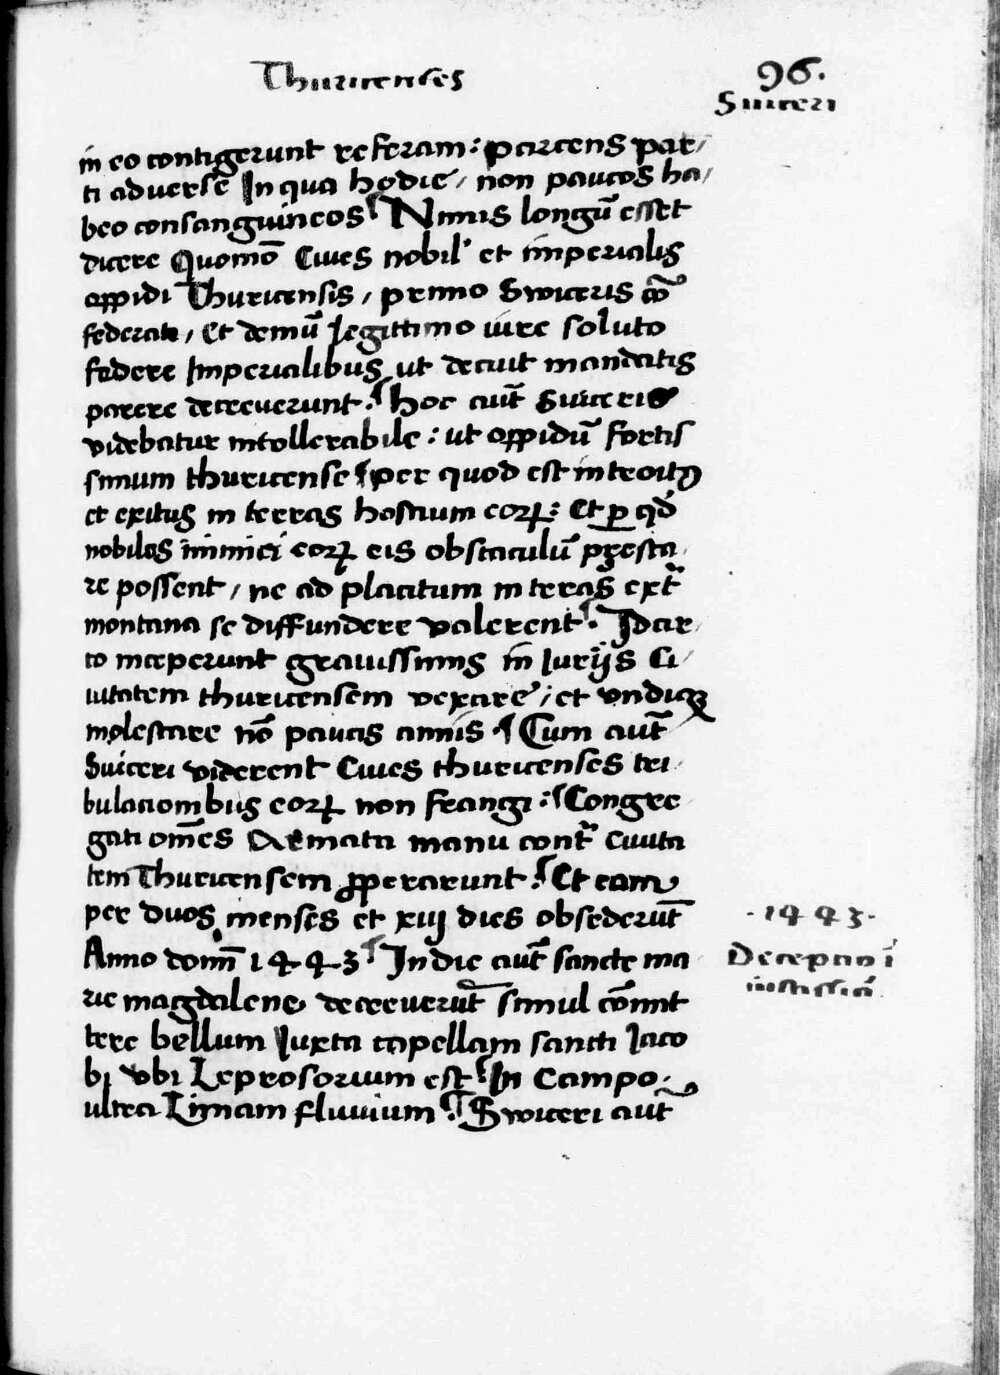 Thuricenses
96.
Suiceri
in eo contigerunt referam: parcens par/
ti adverse In qua hodie, non paucos ha/
beo consanguineos Nimis longū esset
dicere Quomō Cives nobil' et imperialis
oppidi Thuricensis, primo Swiceris cō
federati, Et demū legittimo iure soluto
federe Imperialibus ut decuit mandatis
parere decreverunt. hoc aut̄ Suiceris
videbatur intollerabile: ut oppidū fortis
simum thuricense per quod est introitꝰ
et exitus in terras hostium eorꝝ: Et ꝑ qd̄
nobiles inimici eorꝝ eis obstaculū p̄sta/
re possent, ne ad placitum in terras ext̄
montana se diffundere valerent. Idcir/
co inceperunt gravissimis in Iurijs Ci/
vitatem thuricensem vexare, et undiqꝫ
molestare nō paucis annis. Cum aut̄
Suiceri viderent Cives thuricenses tri/
bulacionibus eorꝝ non frangi: Congre
gati om̄es Armata manu cont̄ Civita
tem Thuricensem ꝓperarunt. Et eam
per duos menses et xiij dies obsederūt
Anno domī 1443 In die aut̄ sancte ma
rie magdalene decreverūt simul cōmit
tere bellum Iuxta capellam sancti Iaco
bi ubi Leprosorium est In Campo.
ultra Limam fluvium. Swiceri aut̄
.1443.
Decepcio ī